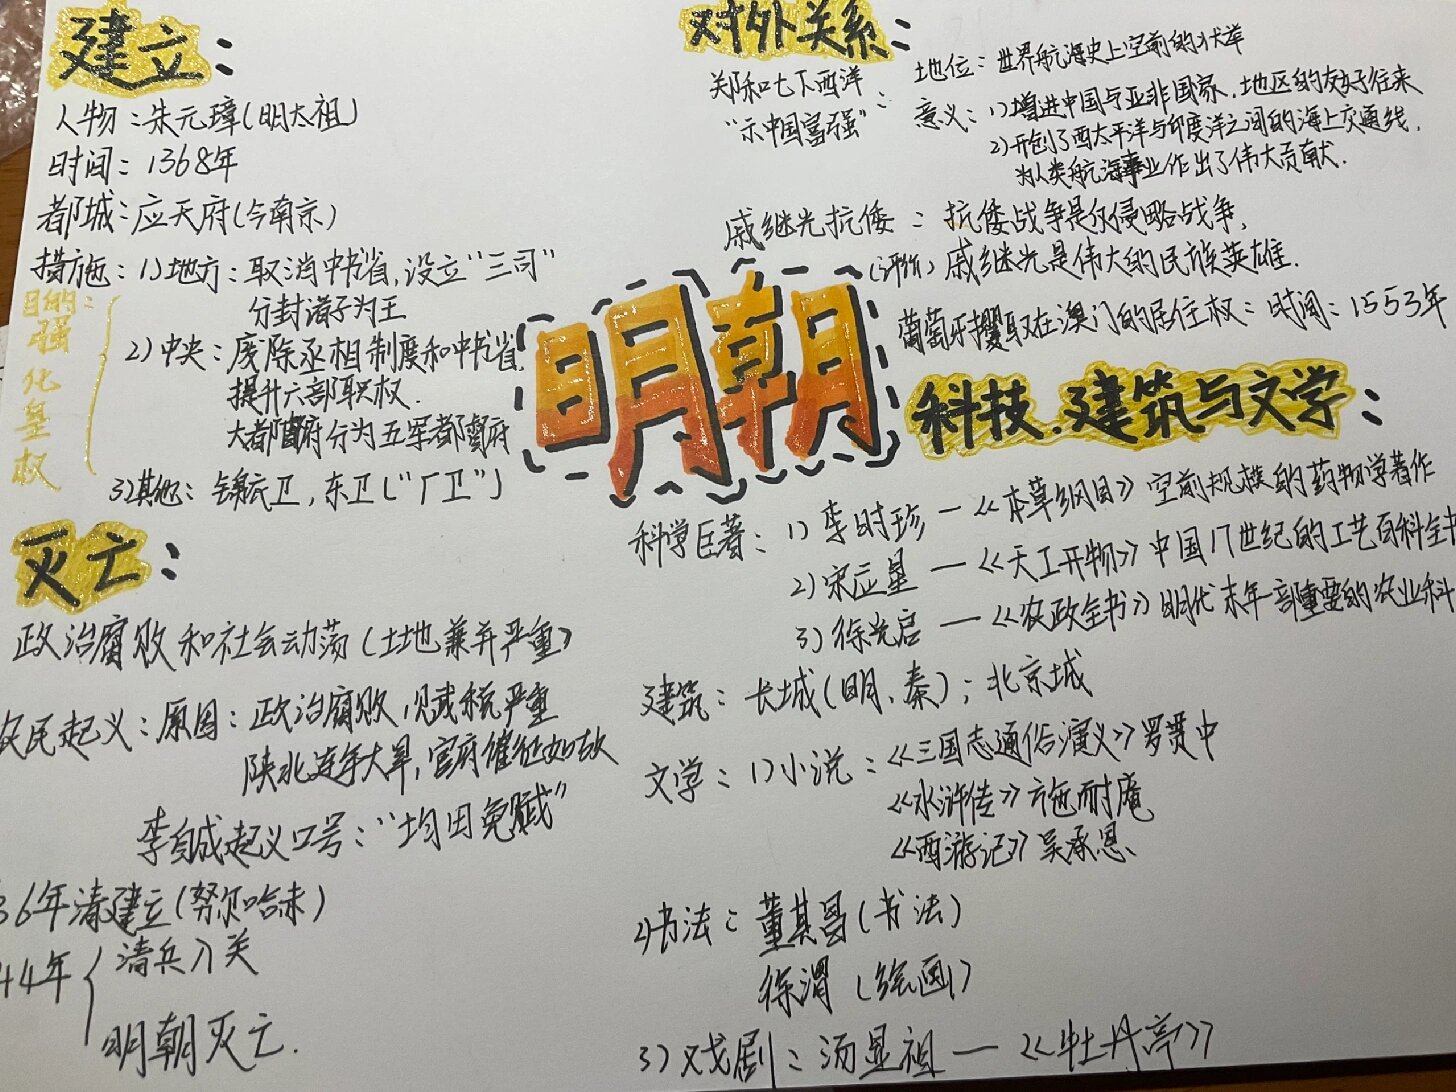 建立：
人物：朱元璋(明太祖)
时间：1368年
都城：应天府(今南京)
措施：1)地方：取消中书省,设立"三司"
分封诸子为王
目的：强化皇权
2)中央：废除丞相制度和中书省,
提升六部职权.
大都督府分为五军都督府
3)其他：锦衣卫,东卫("厂卫")
灭亡：
政治腐败和社会动荡(土地兼并严重)
农民起义：原因：政治腐败,赋税严重
陕北连年大旱,官府催征如故
李自成起义口号："均田免赋"
36年清建立(努尔哈赤)
44年{清兵入关
明朝灭亡.
明朝
对外关系：
郑和七下西洋：
"示中国富强"
地位：世界航海史上空前的状举
意义：1)增进中国与亚非国家、地区的友好往来
2)开创了西太平洋与印度洋之间的海上交通线,
为人类航海事业作出了伟大贡献.
戚继光抗倭：抗倭战争是反侵略战争,
(评价)戚继光是伟大的民族英雄.
葡萄牙攫取在澳门的居住权：时间：1553年
科技、建筑与文学：
科学巨著：1)李时珍—《本草纲目》空前规模的药物学著作
2)宋应星—《天工开物》中国17世纪的工艺百科全书
3)徐光启—《农政全书》明代末年一部重要的农业科
建筑：长城(明、秦)；北京城
文学：1)小说：《三国志通俗演义》罗贯中
《水浒传》施耐庵
《西游记》吴承恩
2)书法：董其昌(书法)
徐渭(绘画)
3)戏剧：汤显祖—《牡丹亭》